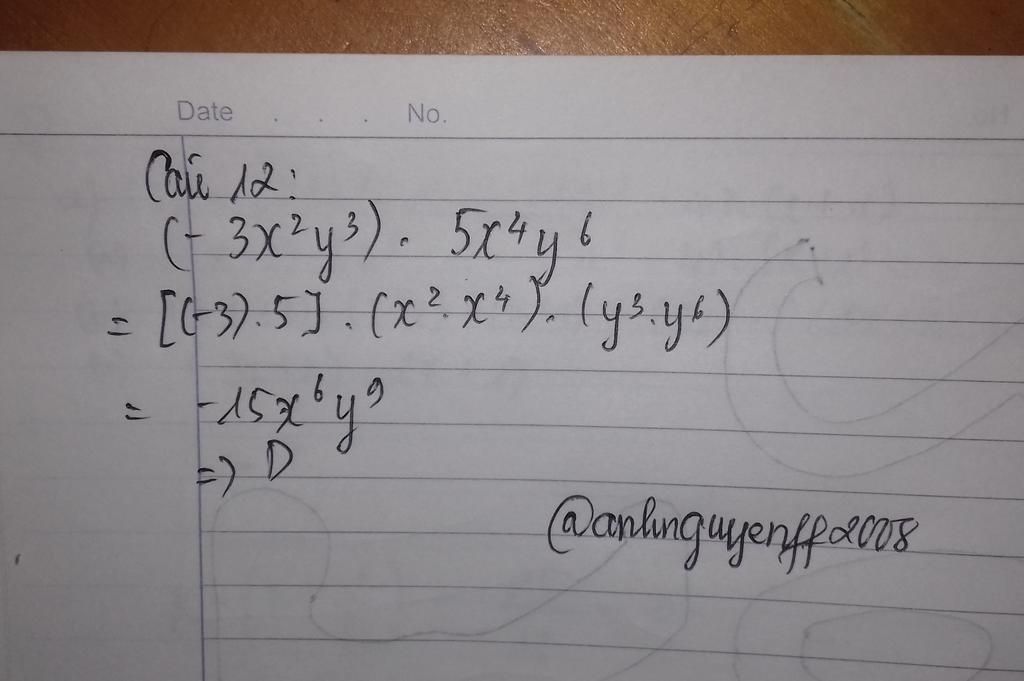 Date . . . No.
Câu 12:
(-3x²y³) . 5x⁴y⁶
= [(-3).5] . (x².x⁴). (y³.y⁶)
= -15x⁶y⁹
=> D
@anhnguyenff2008